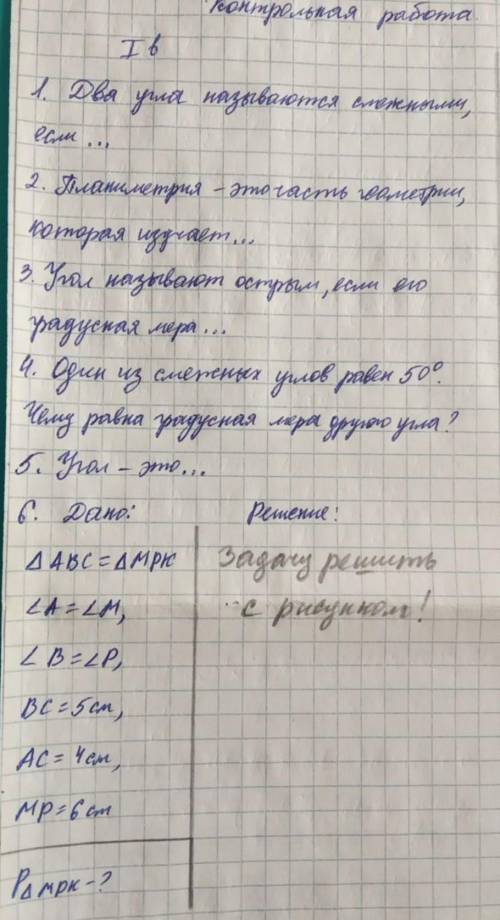 Контрольная работа
I в
1. Два угла называются смежными,
если...
2. Планиметрия - это часть геометрии,
которая изучает...
3. Угол называют острым, если его
градусная мера...
4. Один из смежных углов равен 50°.
Чему равна градусная мера другого угла?
5. Угол - это...
6. Дано:
Решение:
△ABC = △MPK
Задачу решить
∠A = ∠M,
с рисунком!
∠B = ∠P,
BC = 5 см,
AC = 4 см,
MP = 6 см
P△MPK - ?